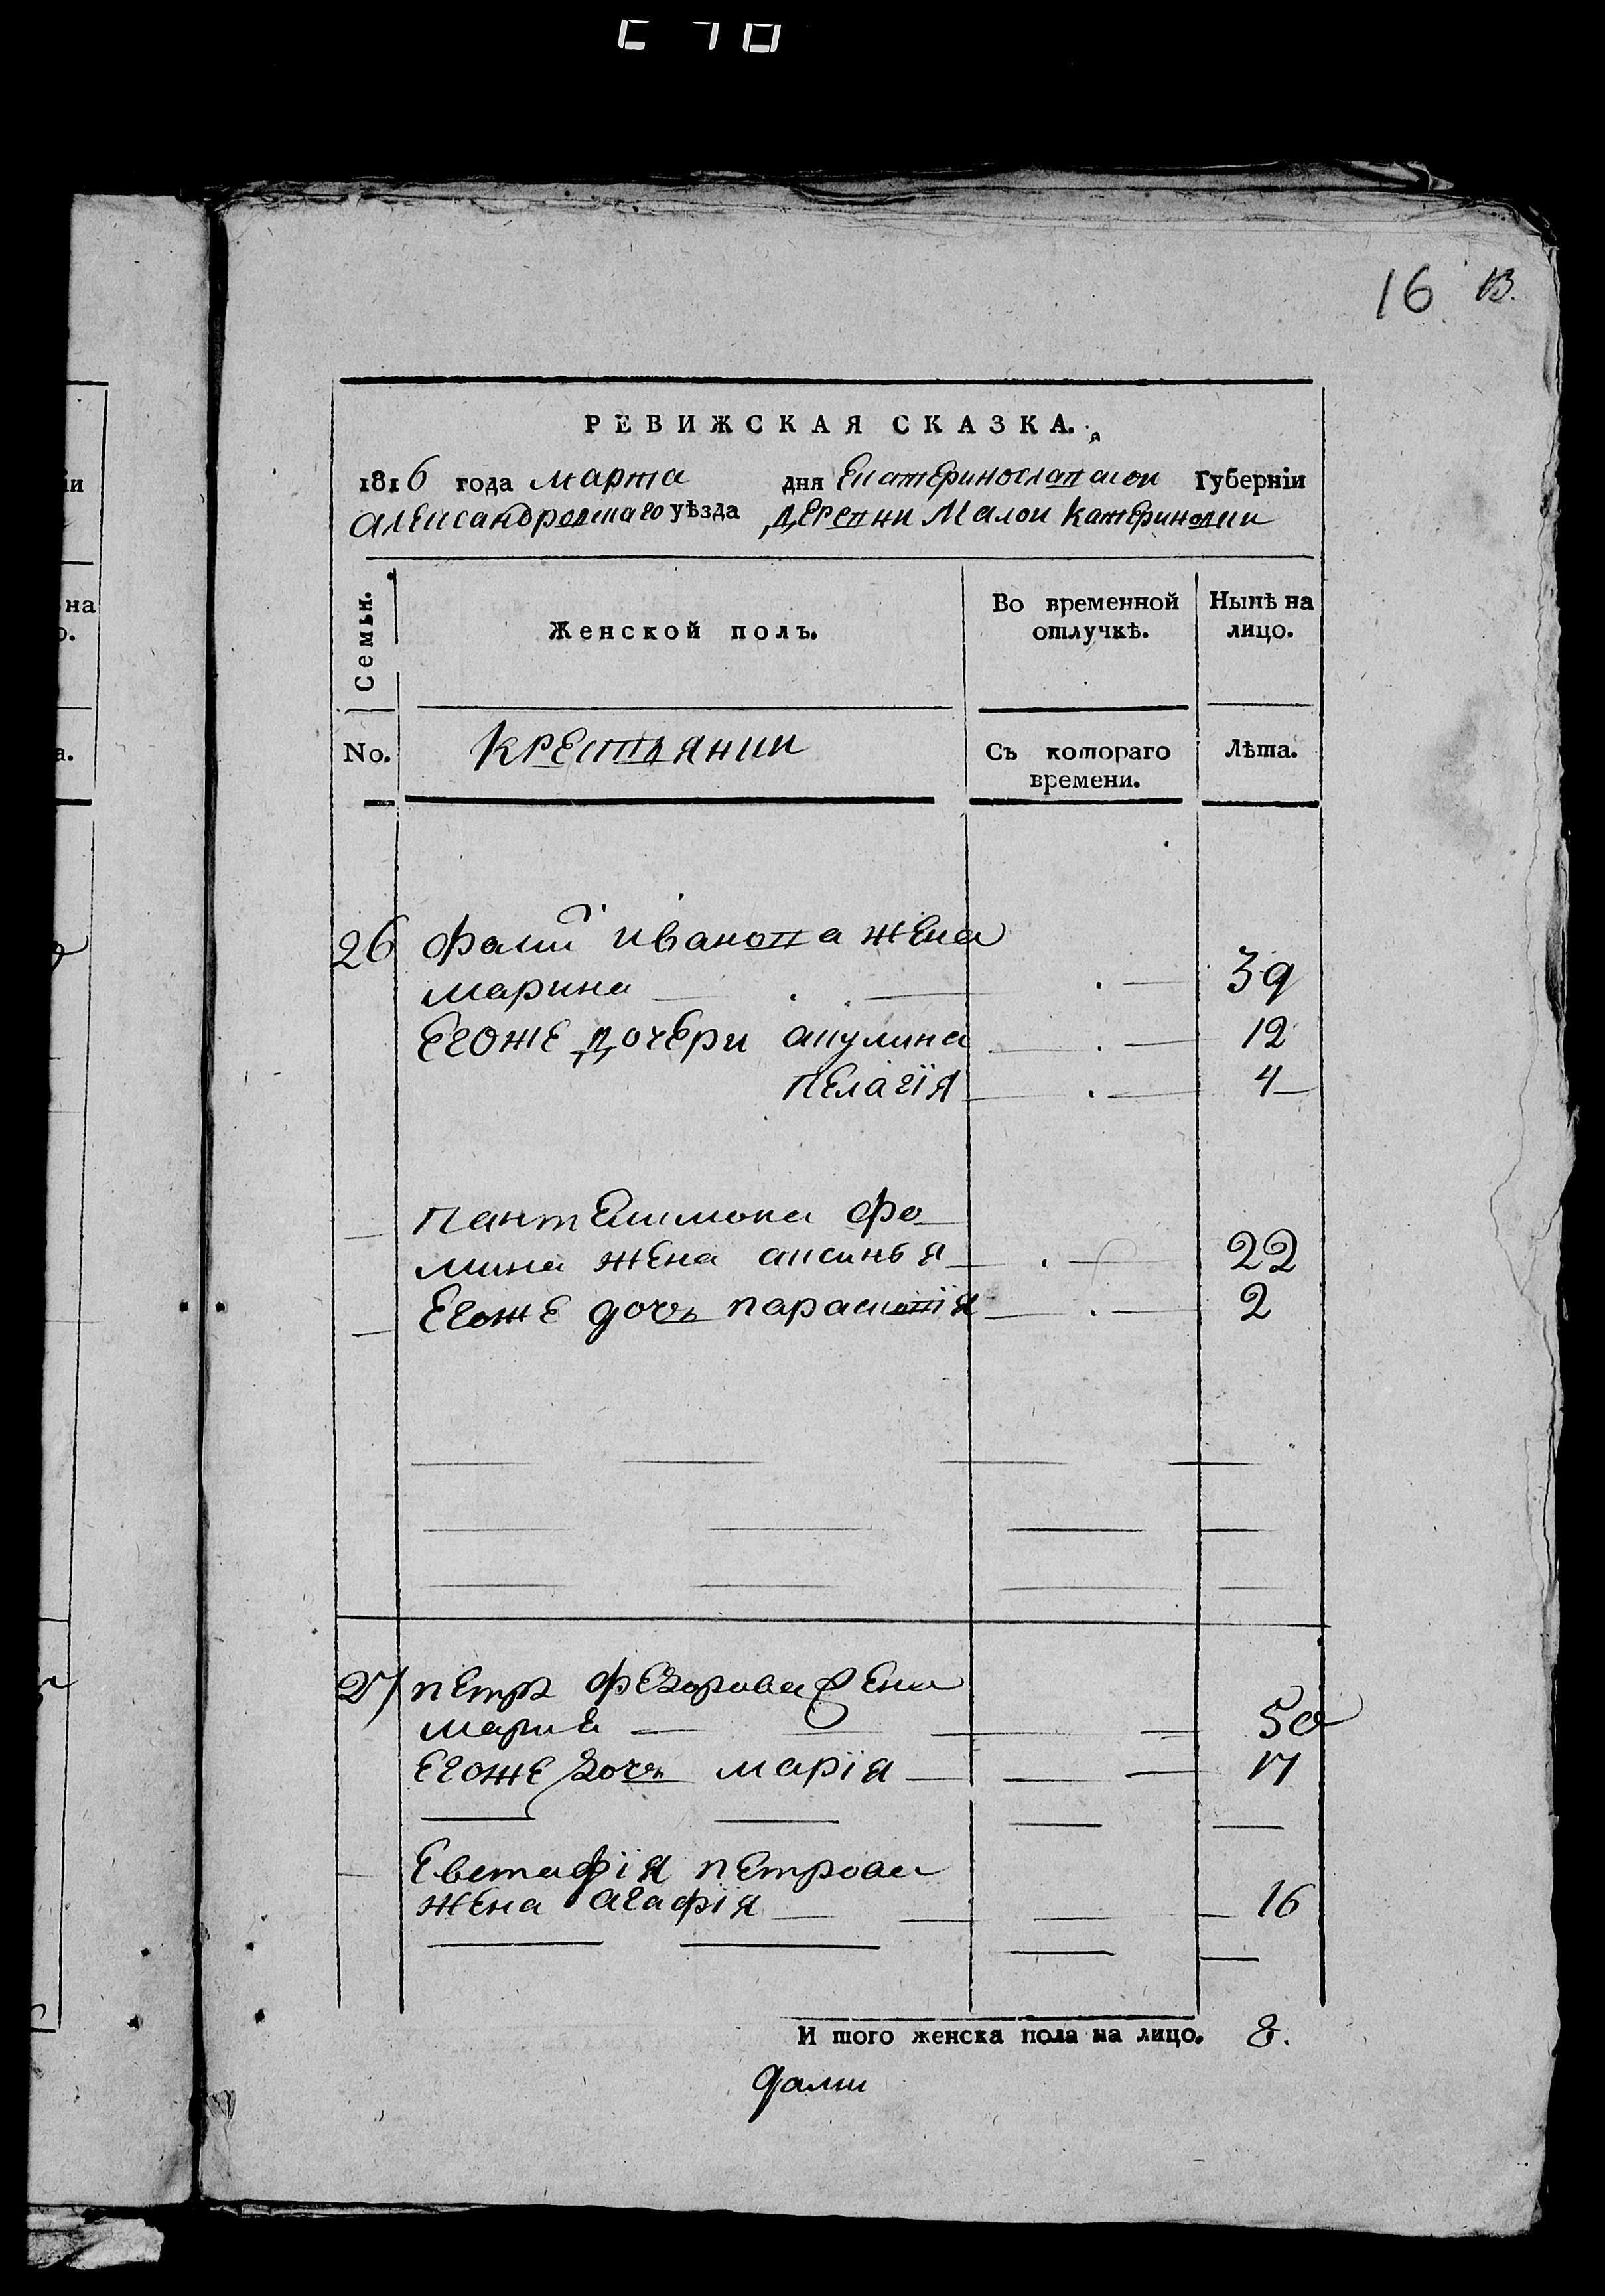 16 13.
РЕВИЖСКАЯ СКАЗКА.
1816 года марта дня Екатеринославской Губерніи
Александровскаго уѣзда деревни Малой Катериновки
Семьи.
Женской полъ.
Во временной отлучкѣ.
Нынѣ на лицо.
No.
крестьянки
Съ котораго времени.
Лѣта.
26 фами иванова жена
марина 39
Егоже дочери акулина 12
пелагія 4
пантелимона фо
мина жена аксинья 22
Егоже дочь параскотія 2
27 петръ федорова жена
мариѣ 50
егоже дочь марія 17
Евстафія петрова
жена агафія 16
И того женска пола на лицо. 8.
іи
на
о.
а.